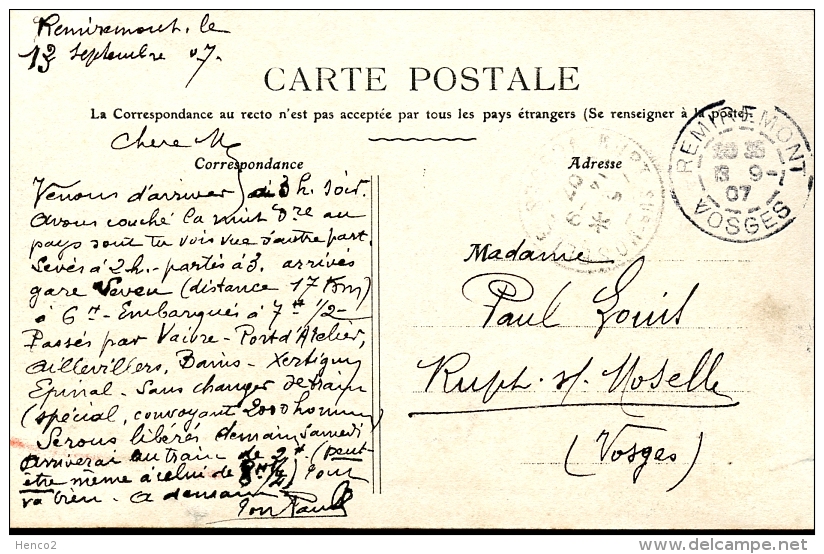 Remiremont, le
13 Septembre 07.
CARTE POSTALE
La Correspondance au recto n'est pas acceptée par tous les pays étrangers (Se renseigner à la poste)
Chere M
Correspondance
Adresse
REMIREMONT
20 35
13 9-
07
VOSGES
RUPT SUR MOSELLE
Venons d'arriver à 3 h. soir.
Avons couché la nuit dre au
pays dont tu vois vue d'autre part.
Levés à 2h. partis à 3. arrivés
gare (distance 17 Km)
à 6 H - Embarqués à 7 H 1/2 -
Passés par Vaivre - Port d'Atelier,
Aillevillers, Bains - Xertigny
Epinal - Sans changer de train
(spécial, convoyant 2000 hommes)
Serons libérés demain samedi
arriverai au train de 2H (peut-
être même à celui de ) Tout
va bien. A demain
Ton Paul
Madame
Paul Louis
Rupt. s/. Moselle
(Vosges)
Henco2
http://www.delcampe.net